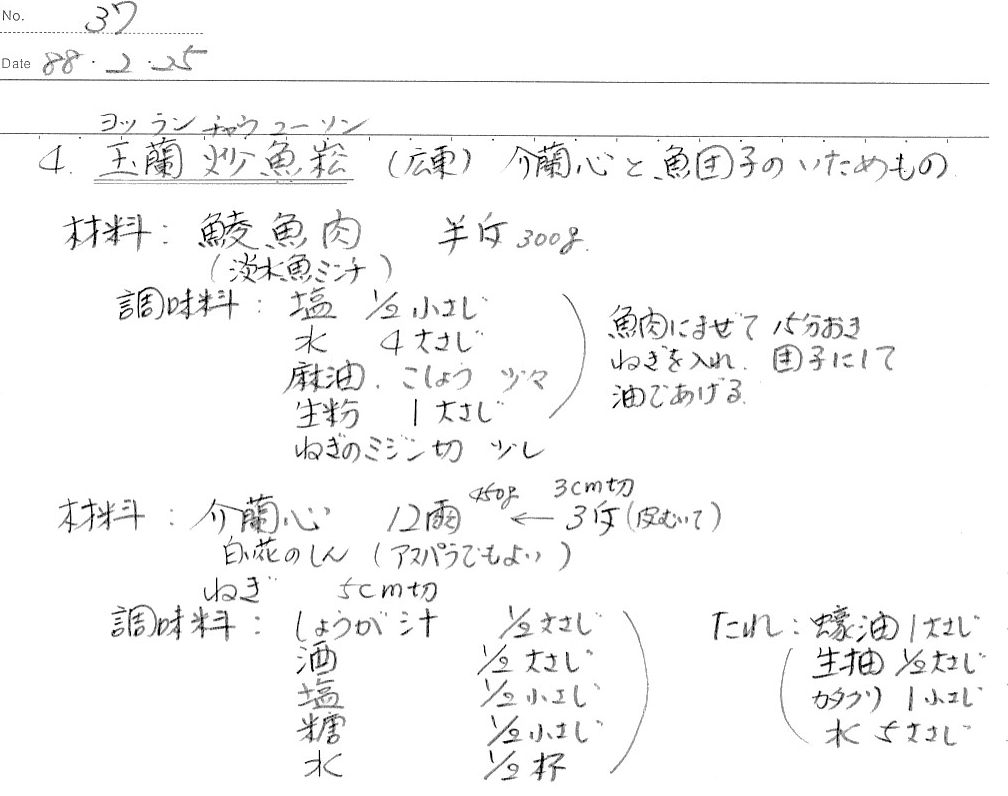 No. 37
Date 88・2・25
ヨッ ラン チャウ ユー ソン
4. 玉蘭炒魚崧 (広東) 介蘭心と魚団子のいためもの
材料: 鯪魚肉 半斤 300g.
(淡水魚ミンチ)
調味料: 塩 1/2 小さじ
水 4 大さじ
麻油. こしょう 少々
生粉 1 大さじ
ねぎのミジン切 少し
魚肉にまぜて 15分おき
ねぎを入れ. 団子にして
油であげる.
材料: 介蘭心 12両 450g ← 3斤(皮むいて) 3cm切
白い花のしん (アスパラでもよい)
ねぎ 5cm切
調味料: しょうが汁 1/2 大さじ
酒 1/2 大さじ
塩 1/2 小さじ
糖 1/2 小さじ
水 1/2 杯
たれ: 蠔油 1 大さじ
生抽 1/2 大さじ
カタクリ 1 小さじ
水 5 大さじ